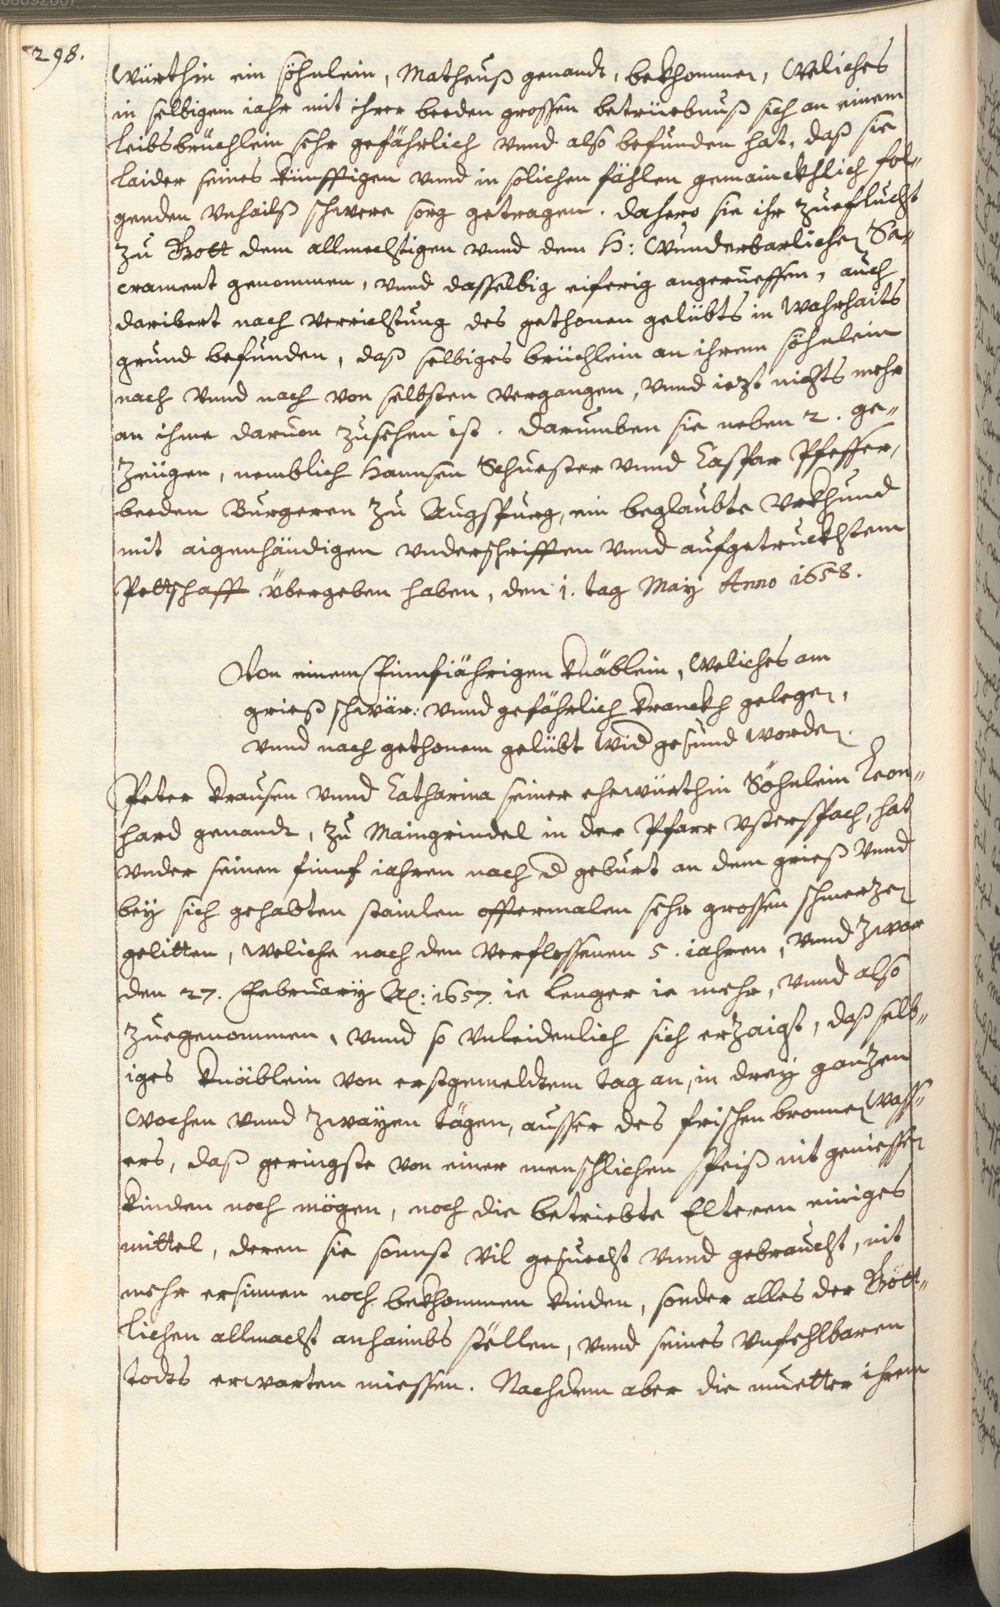 298.
Würthin ein söhnlein, Matheuß genandt, bekhommen, Weliches
in selbigem iahr mit ihrer beeden grossen betrüebnuß sich an einem
leibsbrüchlein sehr gefährlich vnnd also befunden hat, daß sie
laider seines künfftigen vnnd in solichen fählen gemaincklich fol„
genden Vnhails schwere sorg getragen. dahero sie ihr Zueflucht
Zu Gott dem allmechtigen vnnd dem H: Wunderbarlichen Sa„
crament genommen, vnnd dasselbig eiferig angerueffen, auch
daribert nach Verrichtung des gethonen gelübts in Wahrhaits
grund befunden, daß selbiges brüchlein an ihrem söhnlein
nach vnnd nach von selbsten Vergangen, vnnd iezt nichts mehr
an ihme daruon Zusehen ist. darumben sie neben 2. ge„
Zeügen, nemblich Hannsen Schuester vnnd Caspar Pfeffer,
beeden Burgeren Zu Augspurg, ein beglaubte Vrkhund
mit aigenhändigen vnderschrifften vnnd aufgetruckhtem
Pettschafft übergeben haben, den 1. tag May Anno 1658.
Von einem finnfiährigen knäblein, Weliches am
grieß schwär: vnnd gefährlich kranckh gelegen,
vnnd nach gethonem gelübt Wid gesund worden.
Peter krausen vnnd Catharina seiner ehewürthin Söhnlein Leon„
hard genandt, Zu Maingrindel in der Pfarr Vsterspach, hat
vnder seinen finnf iahren nach d geburt an dem grieß vnnd
bey sich gehabten stainlen offtermalen sehr grossen schmerzen
gelitten, Weliche nach den Verflossenen 5. iahren, vnnd Zwar
den 27. February Ao: 1657. ie lenger ie mehr, vnnd also
Zuegenommen, vnnd so Vnleidenlich sich erZaigt, daß selb„
iges knäblein von erstgemeldtem tag an, in drey ganzen
Wochen vnnd Zwayen tägen, ausser des frischen bronnen Wass„
ers, daß geringste von einer menschlichen speiß nit geniessen
kinden noch mögen, noch die betriebte Elteren einiges
mittel, deren sie sonnst Vil gesuecht vnnd gebraucht, nit
mehr ersinnen noch bekhommen kinden, sonder alles der Gött„
lichen allmacht anhaimbs stöllen, vnnd seines Vnfehlbaren
todts erwarten miessen. Nachdem aber die muetter ihrem